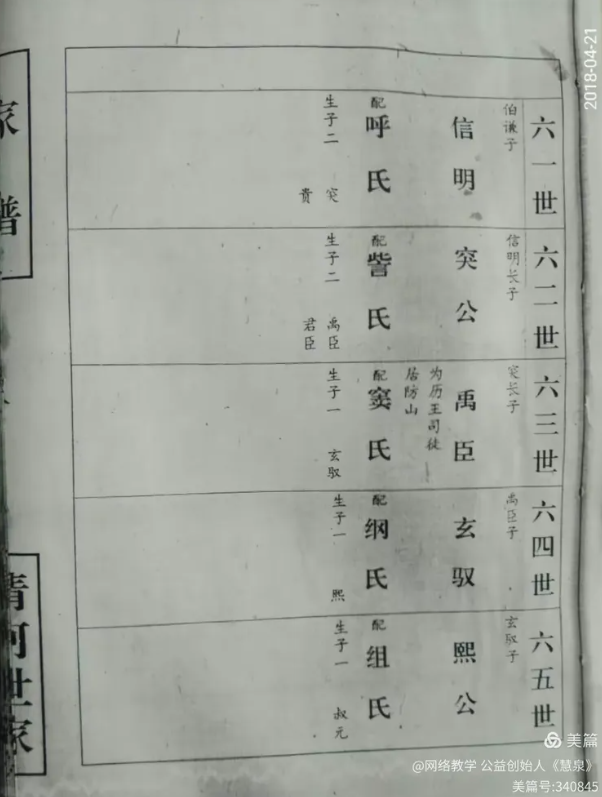 六一世
伯谦子
信明
配
呼氏
生子二
突
贵
六二世
信明长子
突公
配
訾氏
生子二
禹臣
君臣
六三世
突长子
禹臣
为历王司徒
居防山
配
窦氏
生子一
玄驭
六四世
禹臣子
玄驭
配
纲氏
生子一
熙
六五世
玄驭子
熙公
配
组氏
生子一
叔元
家谱
清河世家
2018-04-21
美篇
@网络教学 公益创始人《慧泉》
美篇号:340845